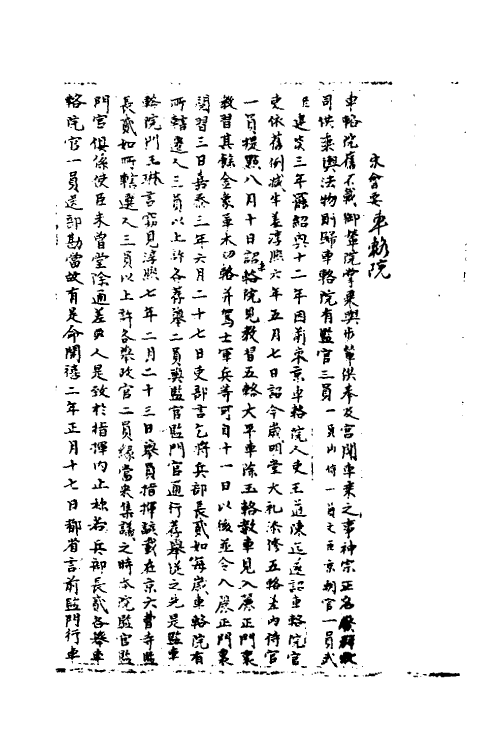 永會要車輅院
車輅院舊不載御輦院掌乘輿步輦供奉及宮闈車乘之事神宗正名
司供乘輿法物則歸車輅院有監官三員一員內侍一員文臣京朝官一員武
臣建炎三年罷紹興十二年因前東京車輅院人吏王道陳迄遂詔車輅院官
吏依舊例減半差淳熙六年五月七日詔今歲明堂大礼添修五輅差內侍官
一員提點八月十日詔車輅院見教習五輅大平車除玉輅教車見入麗正門裏
教習其餘金象革木四輅并駕士軍兵等可自十一日以後並令入麗正門裏
閱習三日嘉泰三年六月二十七日吏部言乞將兵部長貳如每歲車輅院有
所轄選人三員以上許各荐舉二員與監官監門官通行荐舉從之先是監車
輅院門王琳言竊見淳熙七年二月二十三日舉員指揮該載在京六曹寺監
長貳如所轄選人三員以上許各舉改官二員緣當來集議之時本院監官監
門官俱係使臣未曾堂除通差文人是致於指揮內止椒若兵部長貳各舉車
輅院官一員送部勘當故有是命開禧二年正月十七日都省言前監門行車